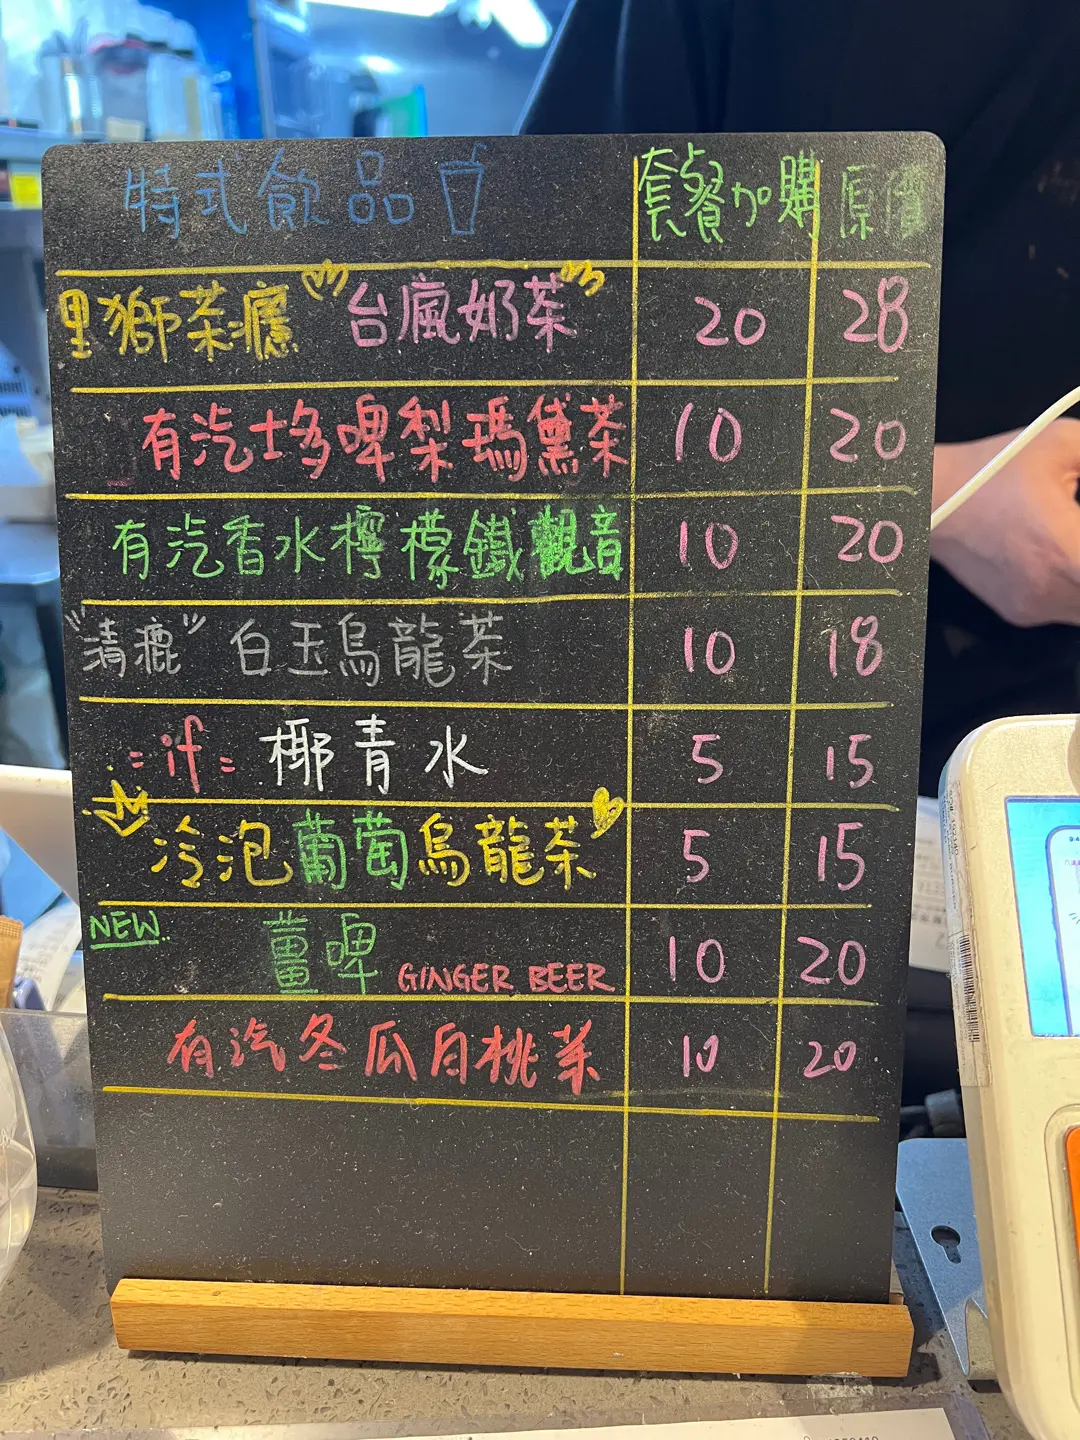 特式飲品 套餐加購 原價
里獅茶瀍 "台瘋奶茶" 20 28
有汽士多啤梨瑪黛茶 10 20
有汽香水檸檬鐵觀音 10 20
"清摝" 白玉烏龍茶 10 18
=if= 椰青水 5 15
冷泡葡萄烏龍茶 5 15
NEW 薑啤 GINGER BEER 10 20
有汽冬瓜白桃茶 10 20